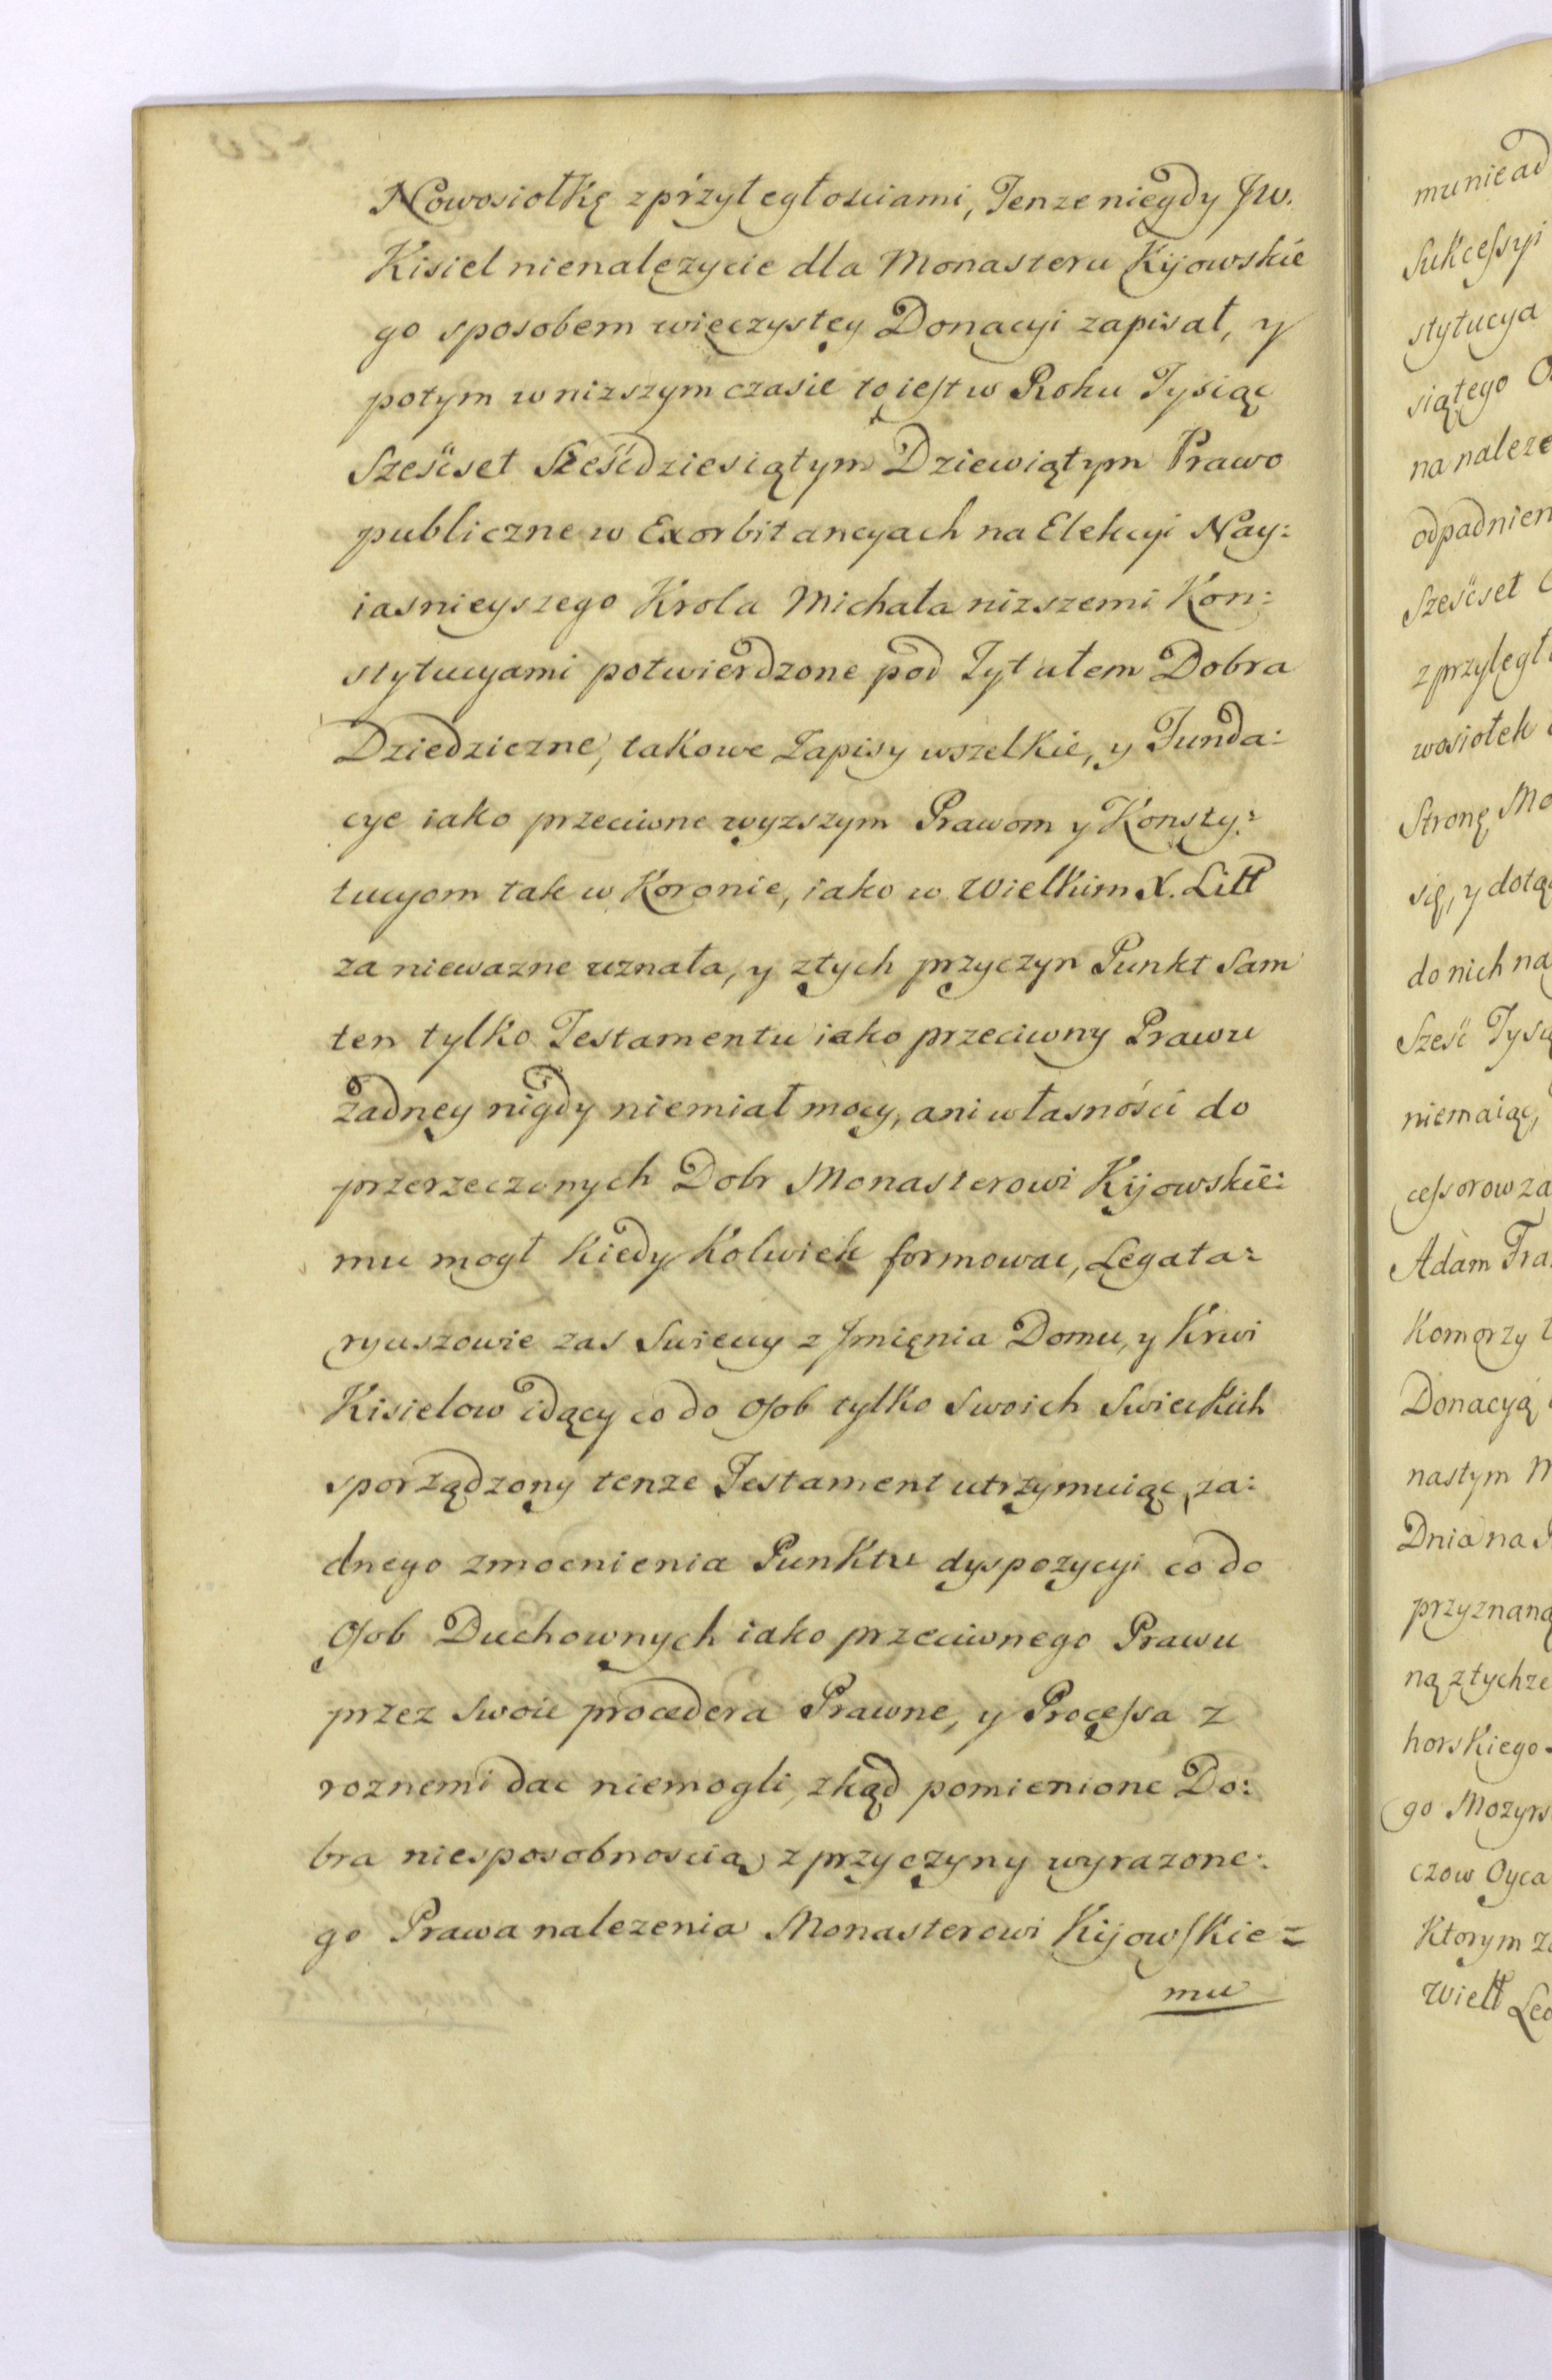 Nowosiołkę z przyległościami, Tenze niegdy Jw.
Kisiel nienalezycie dla Monasteru Kijowskie
go sposobem wieczystey Donacyi zapisał, y
potym w nizszym czasie to iest w Roku Tysiąc
Sześćset Sześćdziesiątym Dziewiątym Prawo
publiczne w Exorbitancyach na Elekcyi Nay:
iasnieyszego Krola Michała nizszemi Kon:
stytucyami potwierdzone pod Tytułem Dobra
Dziedziczne, takowe Zapisy wszelkie, y Funda:
cye iako przeciwne wyzszym Prawom y Konsty:
tucyom tak w Koronie, iako w Wielkim X. Litt
za niewazne uznała, y z tych przyczyn Punkt Sam
ten tylko Testamentu iako przeciwny Prawu
żadney nigdy niemiał mocy, ani własności do
przerzeczonych Dobr Monasterowi Kijowskie:
mu mogł kiedy kolwiek formowac, Legata:
ryuszowie zas Swieccy z Jmięnia Domu, y Krwi
Kisielow idący co do Osob tylko Swoich Swieckich
sporządzony tenze Testament utrzymuiąc, za:
dnego zmocnienia Punktu dyspozycyi co do
Osob Duchownych iako przeciwnego Prawu
przez Swoie procedera Prawne, y Processa z
roznemi dac niemogli, zkąd pomienione Do:
bra niesposobnoscią z przyczyny wyrazone:
go Prawa nalezenia Monasterowi Kijowskie=
mu
mu nie ad
Sukcessyi
stytucya
siątego
na naleze
odpadnien
Sześćset
z przyległ
wosiołek
Stronę Mo
się, y dotą
do nich na
Sześć Tysią
niemaiąc,
cessorow za
Adam Fra
Komorzy
Donacyą
nastym
Dnia na
przyznaną
ną z tychze
horskiego
go Mozyrs
czow Oyca
Ktorym z
Wiell Leo